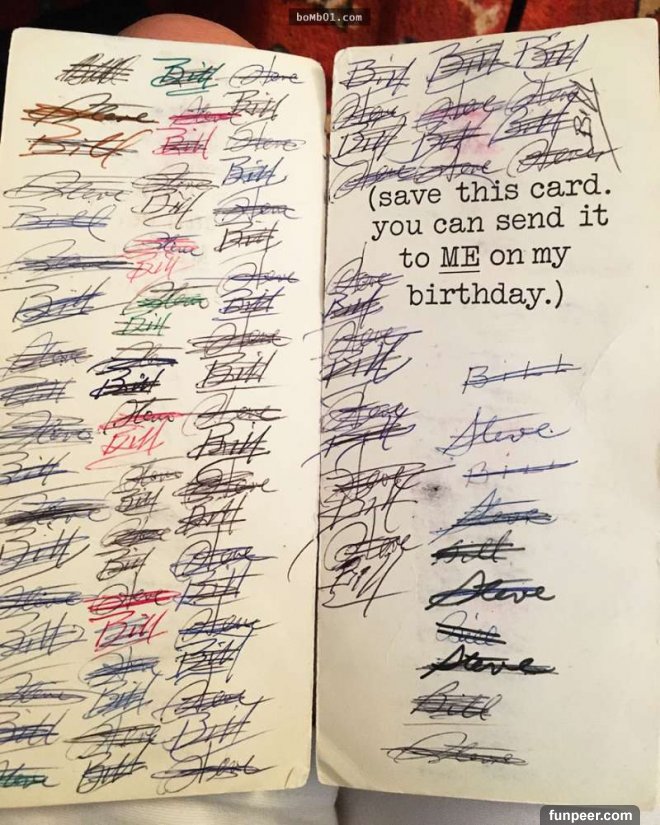 boMb01.com
Bill
Steve
Bill
Steve
Bill
Steve
Bill
Steve
Bill
Steve
Bill
Steve
Bill
Steve
Bill
Steve
Bill
Steve
Bill
Steve
Bill
Steve
Bill
Steve
Bill
Steve
Bill
Steve
Bill
Steve
Bill
Steve
Bill
Steve
Bill
Steve
Bill
Steve
Bill
Steve
Bill
Steve
Bill
Steve
Bill
Steve
Bill
Steve
Bill
Steve
Bill
Steve
Bill
Steve
Bill
Steve
Bill
Steve
Bill
Steve
Bill
Steve
Bill Bill Bill
Steve Steve Steve
Bill Bill Bill
Bill
Steve Steve Steve
(save this card.
you can send it
to ME on my
birthday.)
Steve
Bill
Steve
Bill
Steve
Bill
Steve
Bill
Steve
Bill
Bill
Steve
Bill
Steve
Bill
Steve
Bill
Steve
Bill
Steve
funpeer.com